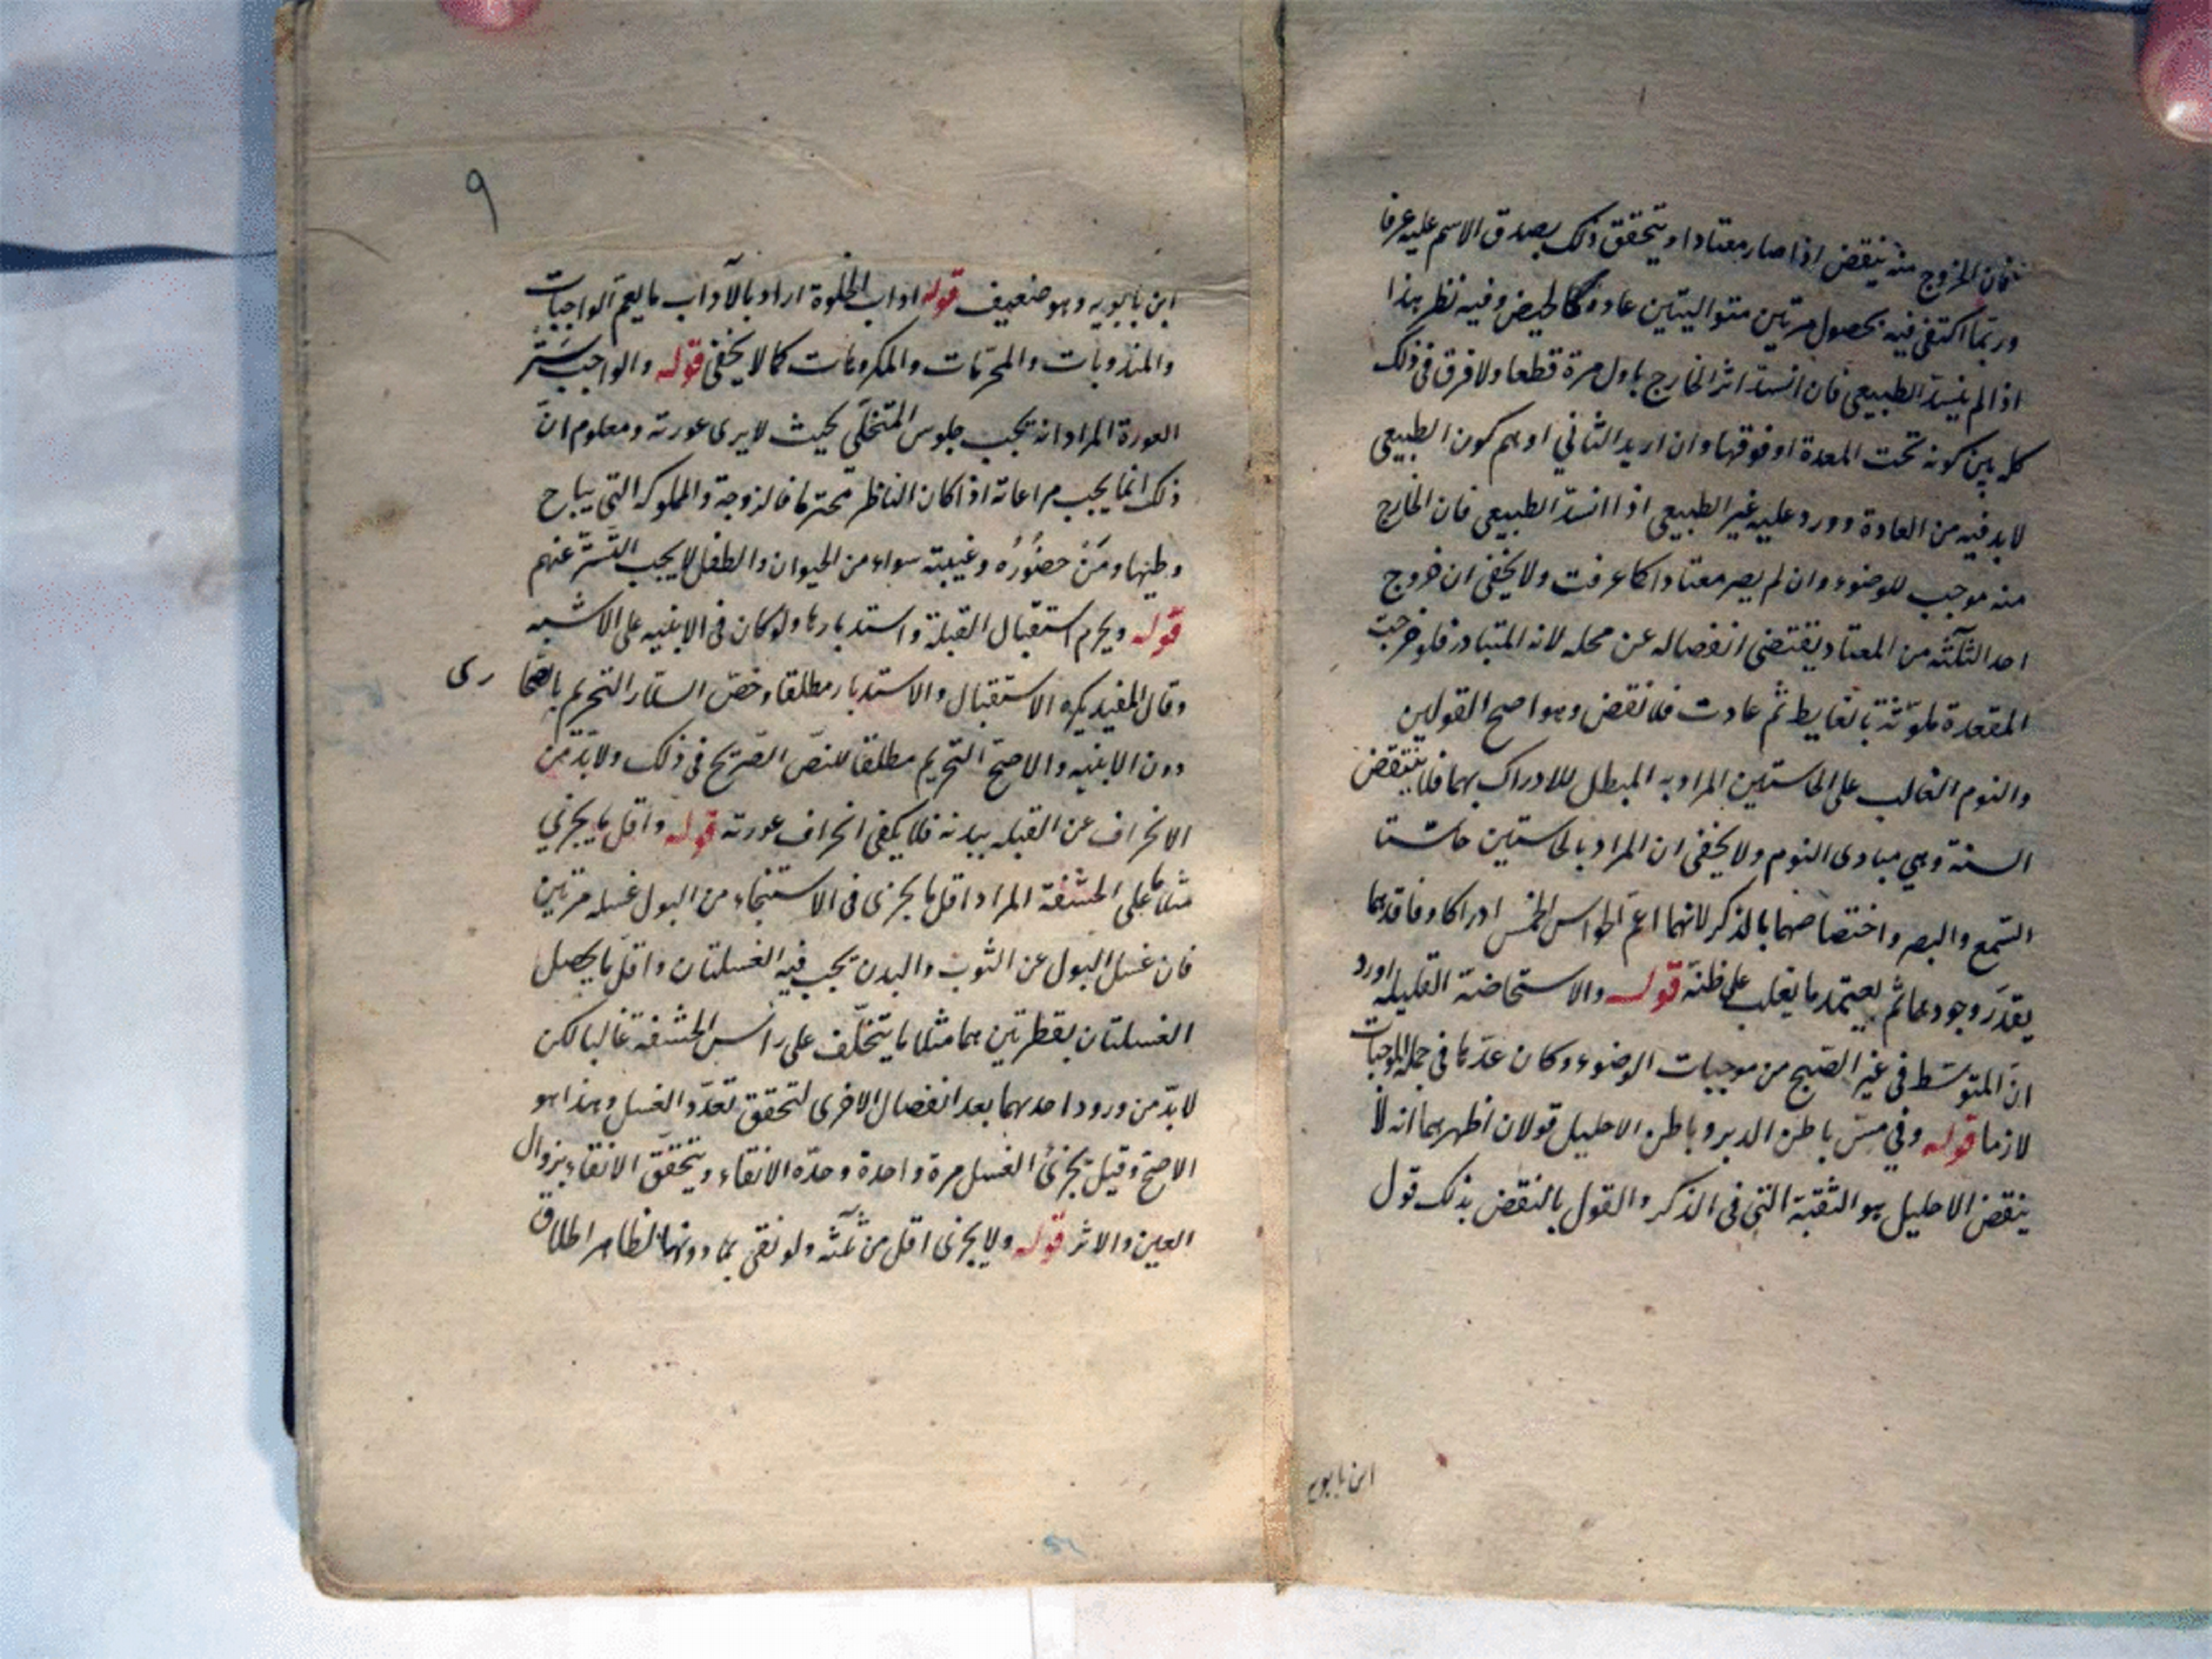 فان الخروج منه ينقض اذا صار معتادا ويتحقق ذلك بصدق الاسم عليه عرفا
وربّما اكتفى فيه بحصول مرتين متواليتين عادة كالحيض وفيه نظر هذا
اذا لم ينسدّ الطبيعي فان انسدّ اثر الخارج باول مرة قطعا ولا فرق في ذلك
كله بين كونه تحت المعدة او فوقها وان اريد الثاني اوهم كون الطبيعي
لابد فيه من العادة وورد عليه غير الطبيعي اذا انسدّ الطبيعي فان الخارج
منه موجب للوضوء وان لم يصر معتادا كما عرفت ولا يخفى ان خروج
احد الثلثه من المعتاد يقتضى انفصاله عن محله لانه المتبادر فلو خرجت
المقعدة ملوّثة بالغايط ثم عادت فلا نقض وهو اصح القولين
والنوم الغالب على الحاستين المراد به المبطل للادراك بهما فلا ينتقض
السنة وهي مبادى النوم ولا يخفى ان المراد بالحاستين حاستا
السّمع والبصر واختصاصهما بالذكر لانهما اعمّ الحواس الخمس ادراكا وفاقدهما
يقدّر وجودهما ثم يعتمد ما يغلب على ظنّه قوله والاستحاضة القليله اورد
انّ المتوسّط في غير الصّبح من موجبات الوضوء وكان عدّها في جملة الموجبات
لازما قوله وفي مسّ باطن الدبر وباطن الاحليل قولان اظهرهما انه لا
ينقض الاحليل هو الثقبة التي في الذكر والقول بالنقض بذلك قول
ابن بابويه
٩
ابن بابويه وهو ضعيف قوله اداب الخلوة اراد بالآداب ما يعمّ الواجبات
والمندوبات والمحرّمات والمكروهات كما لا يخفى قوله والواجب ستر
العورة المراد انه يجب جلوس المتخلّي بحيث لا يرى عورته ومعلوم انّ
ذلك انّما يجب مراعاته اذا كان الناظر محترما فالزوجة والمملوكه التي يباح
وطئها ومَنْ حضُورُه وغيبته سواء من الحيوان والطفل لا يجب التّستّر عنهم
قوله ويحرم استقبال القبلة واستدبارها ولو كان في الابنيه على الاشبه
وقال المفيد يكره الاستقبال والاستدبار مطلقا وخصّ السلار التحريم بالصحا رى
دون الابنيه والاصحّ التحريم مطلقا للنصّ الصّريح في ذلك ولابدّ من
الانحراف عن القبله ببدنه فلا يكفي انحراف عورته قوله واقل ما يجزي
مثلا ما على الحشفة المراد اقل ما يجزى في الاستنجاء من البول غسله مرّتين
فان غسل البول عن الثوب والبدن يجب فيه الغسلتان واقلّ ما يحصل
الغسلتان بقطرتين هما مثلا ما يتخلّف على راس الحشفة غالبا لكن
لابدّ من ورود احدهما بعد انفصال الاخرى لتحقق تعدّد الغسل وهذا هو
الاصحّ وقيل يجزئ الغسل مرة واحدة وحدّه الانقاء ويتحقّق الانقاء بزوال
العين والاثر قوله ولا يجزى اقل من ثلثه ولو نقي بما دونها الظاهر اطلاق